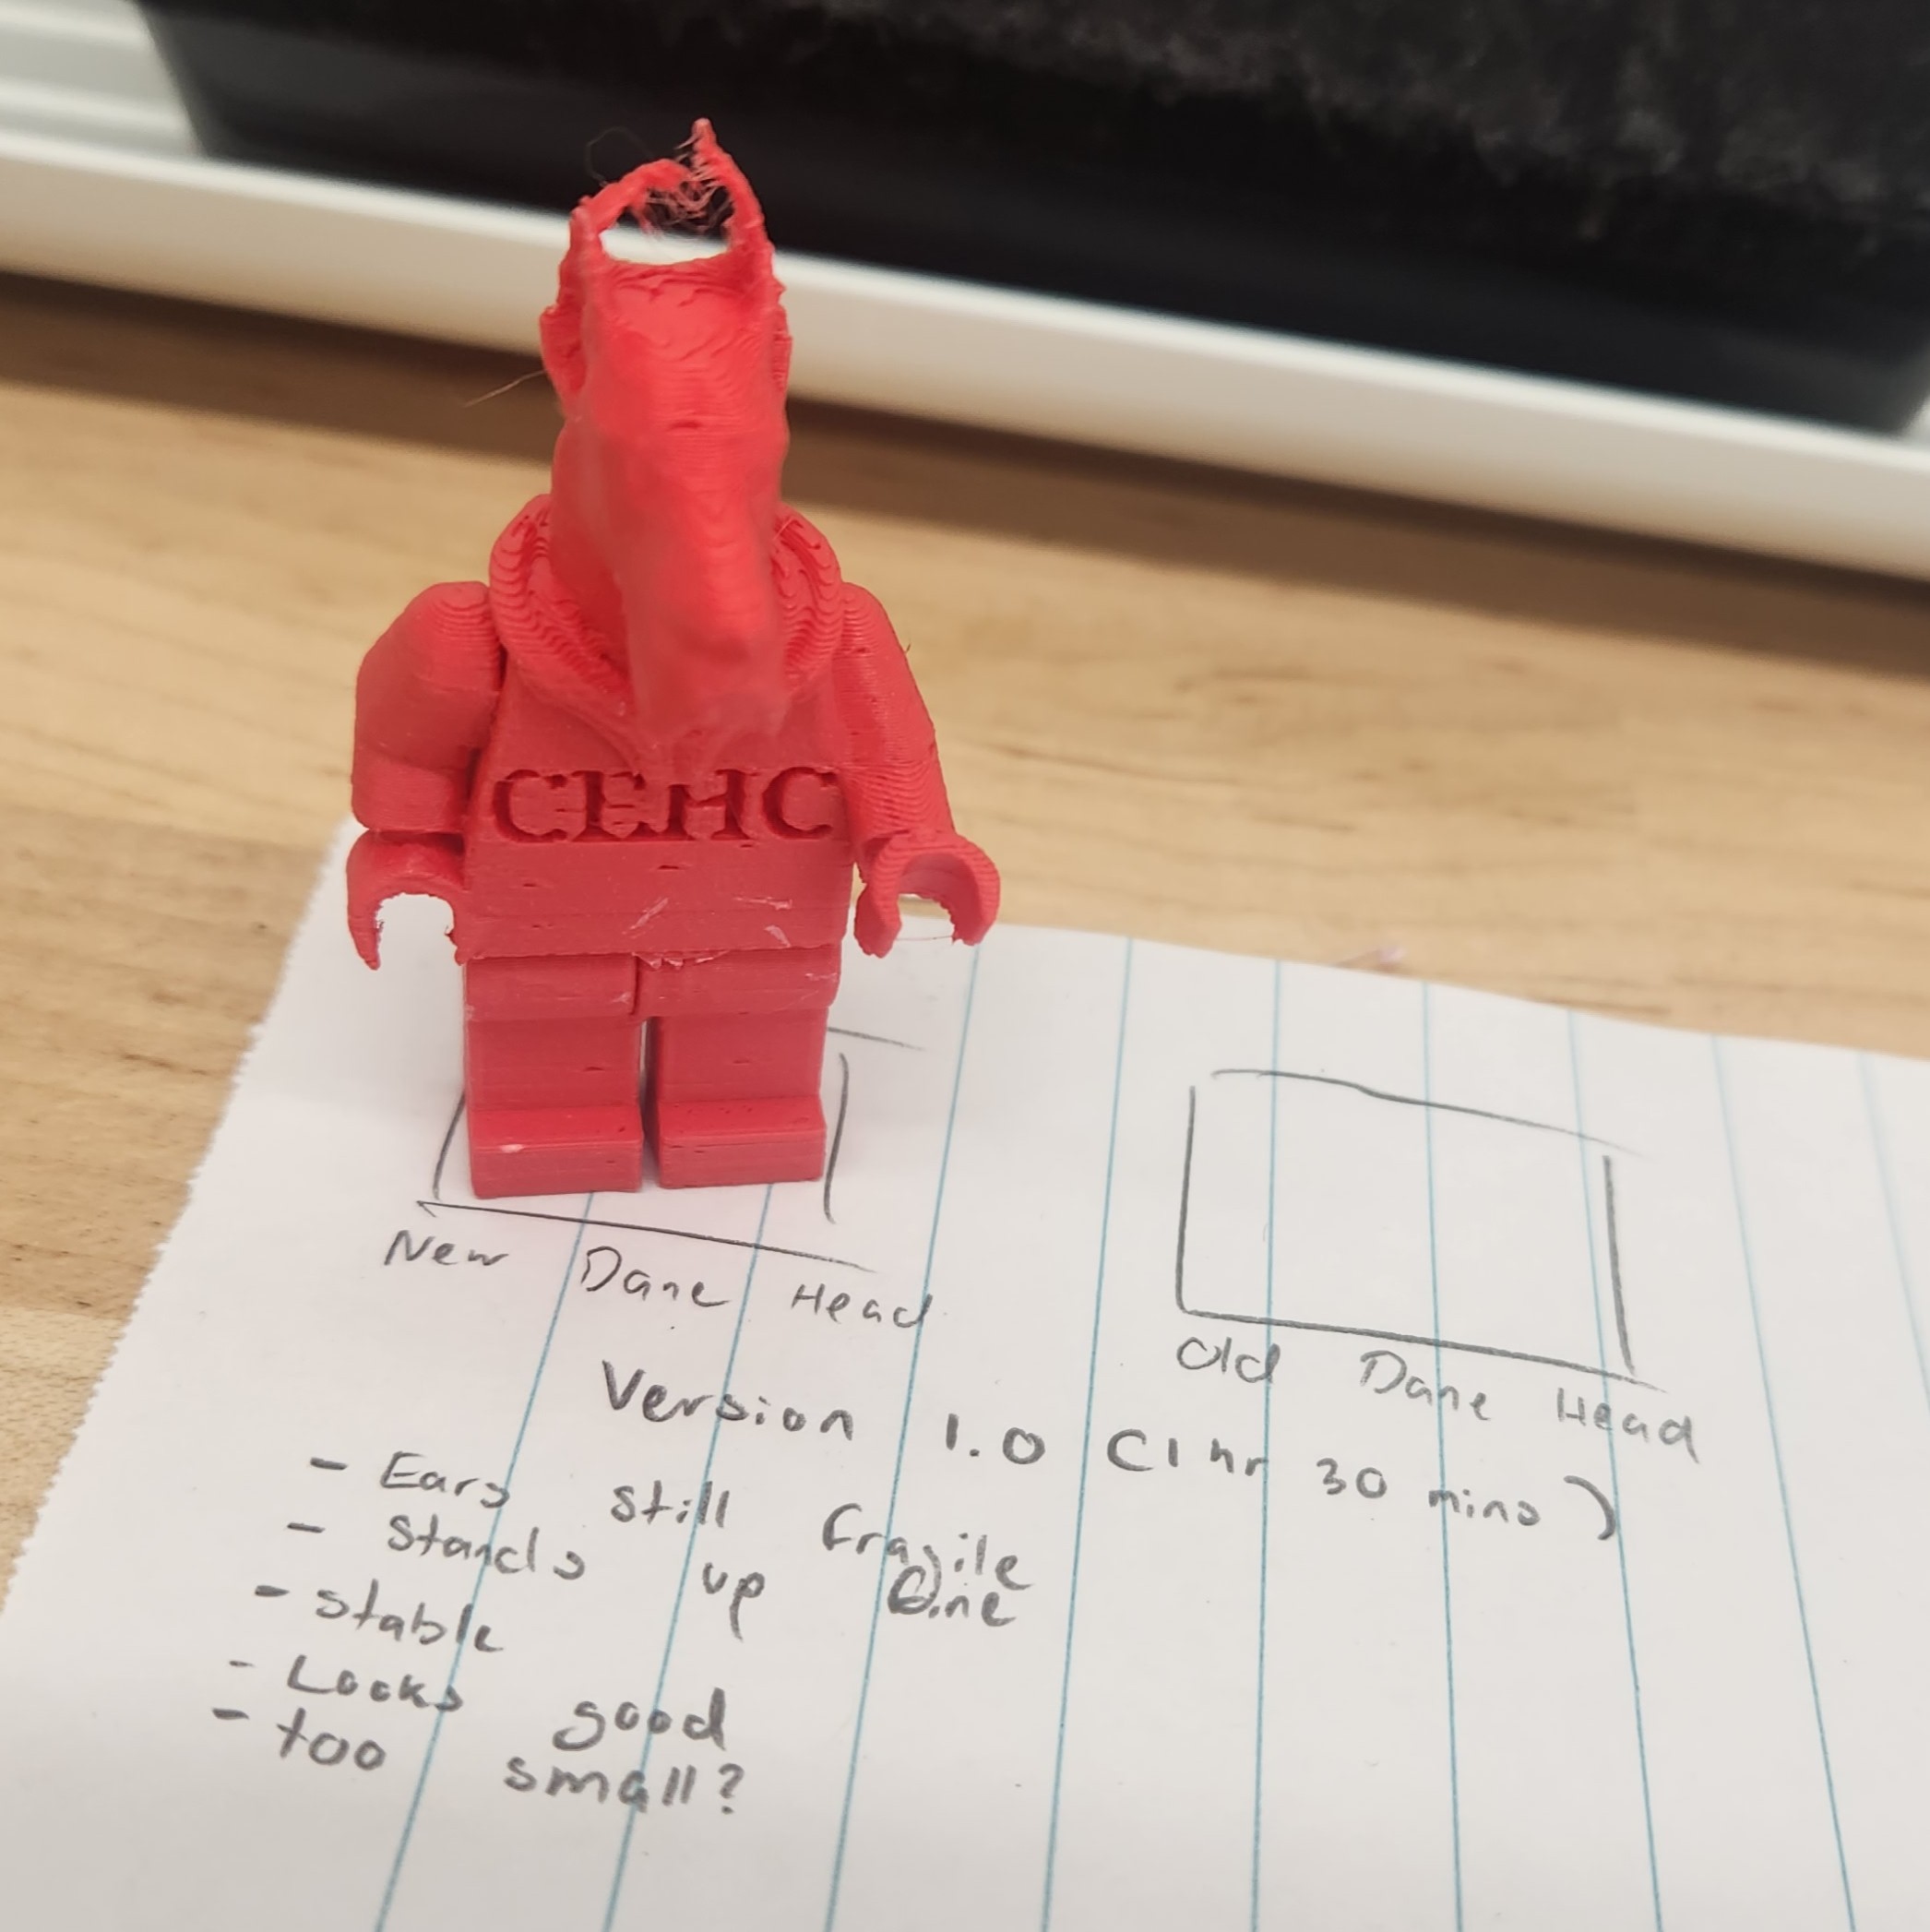 CEHC
New Dane Head
Old Dane Head
Version 1.0 (1 hr 30 mins)
- Ears still fragile
- Stands up fine
- stable
- Looks good
- too small?